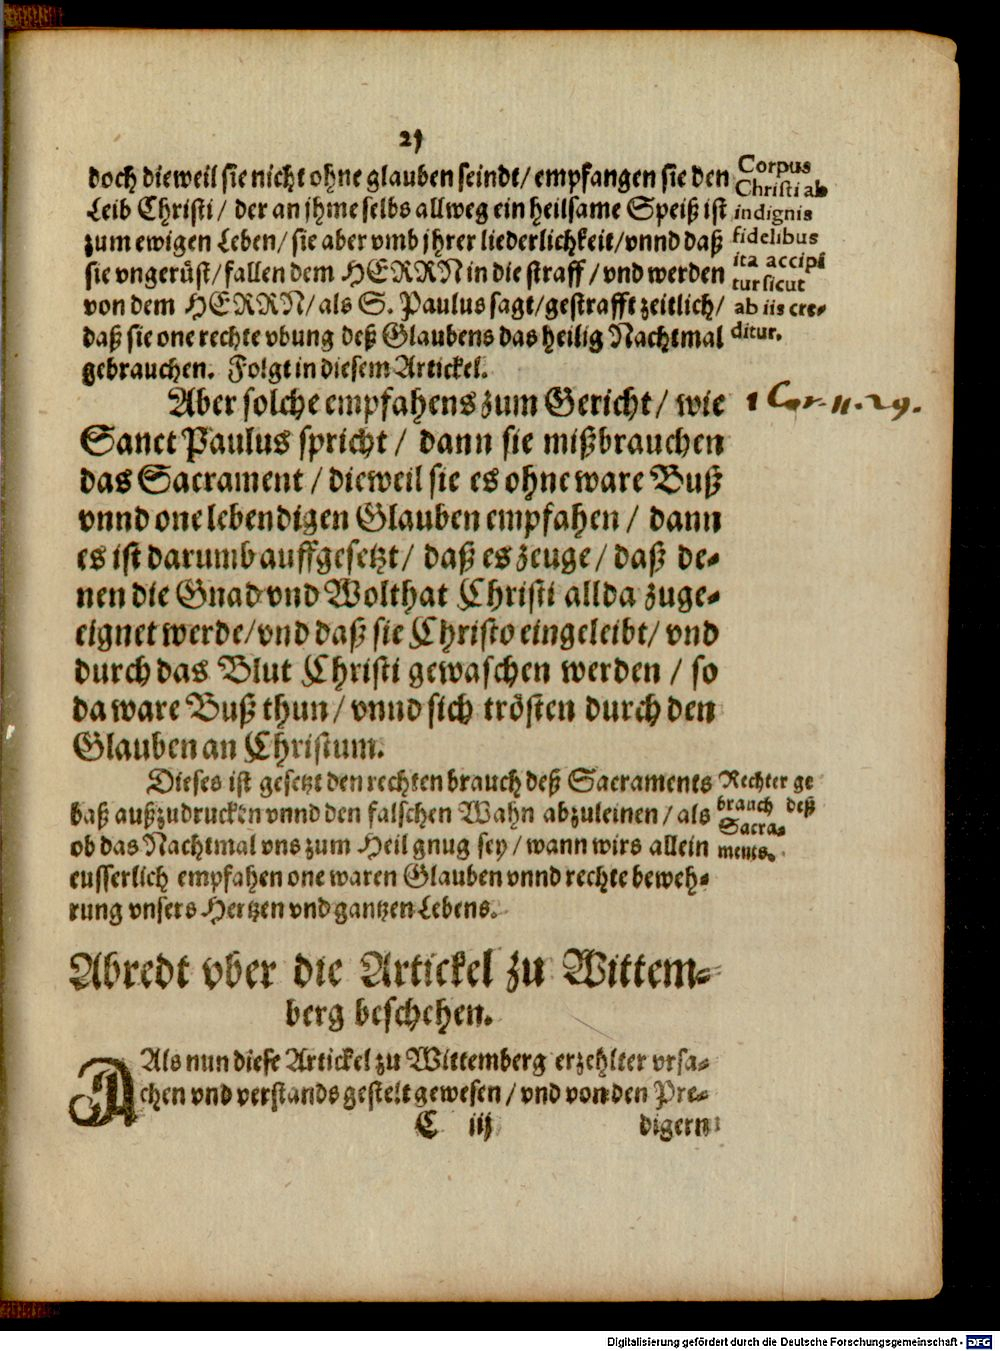 21
doch dieweil sie nicht ohne glauben seindt/ empfangen sie den
Leib Christi/ der an jhme selbs allweg ein heilsame Speiß ist
zum ewigen Leben/ sie aber vmb jhrer liederlichkeit/ vnnd daß
sie vngerüst/ fallen dem HERRN in die straff/ vnd werden
von dem HERRN/ als S. Paulus sagt/ gestrafft zeitlich/
daß sie one rechte vbung deß Glaubens das heilig Nachtmal
gebrauchen. Folgt in diesem Artickel.
Corpus
Christi ab
indignis
fidelibus
ita accipi
tur sicut
ab iis cre-
ditur.
Aber solche empfahens zum Gericht/ wie
Sanct Paulus spricht/ dann sie mißbrauchen
das Sacrament/ dieweil sie es ohne ware Buß
vnnd one lebendigen Glauben empfahen/ dann
es ist darumb auffgesetzt/ daß es zeuge/ daß de-
nen die Gnad vnd Wolthat Christi allda zuge-
eignet werde/ vnd daß sie Christo eingeleibt/ vnd
durch das Blut Christi gewaschen werden/ so
da ware Buß thun/ vnnd sich trösten durch den
Glauben an Christum.
1 Cor. 11. 29.
Dieses ist gesetzt den rechten brauch deß Sacraments
baß außzudrucken vnnd den falschen Wahn abzuleinen/ als
ob das Nachtmal vns zum Heil gnug sey/ wann wirs allein
eusserlich empfahen one waren Glauben vnnd rechte beweh-
rung vnsers Hertzen vnd gantzen Lebens.
Rechter ge
brauch deß
Sacra-
ments.
Abredt vber die Artickel zu Wittem-
berg beschehen.
Als nun diese Artickel zu Wittemberg erzehlter vrsa-
chen vnd verstands gestelt gewesen/ vnd von den Pre-
C iij
digern
Digitalisierung gefördert durch die Deutsche Forschungsgemeinschaft - DFG